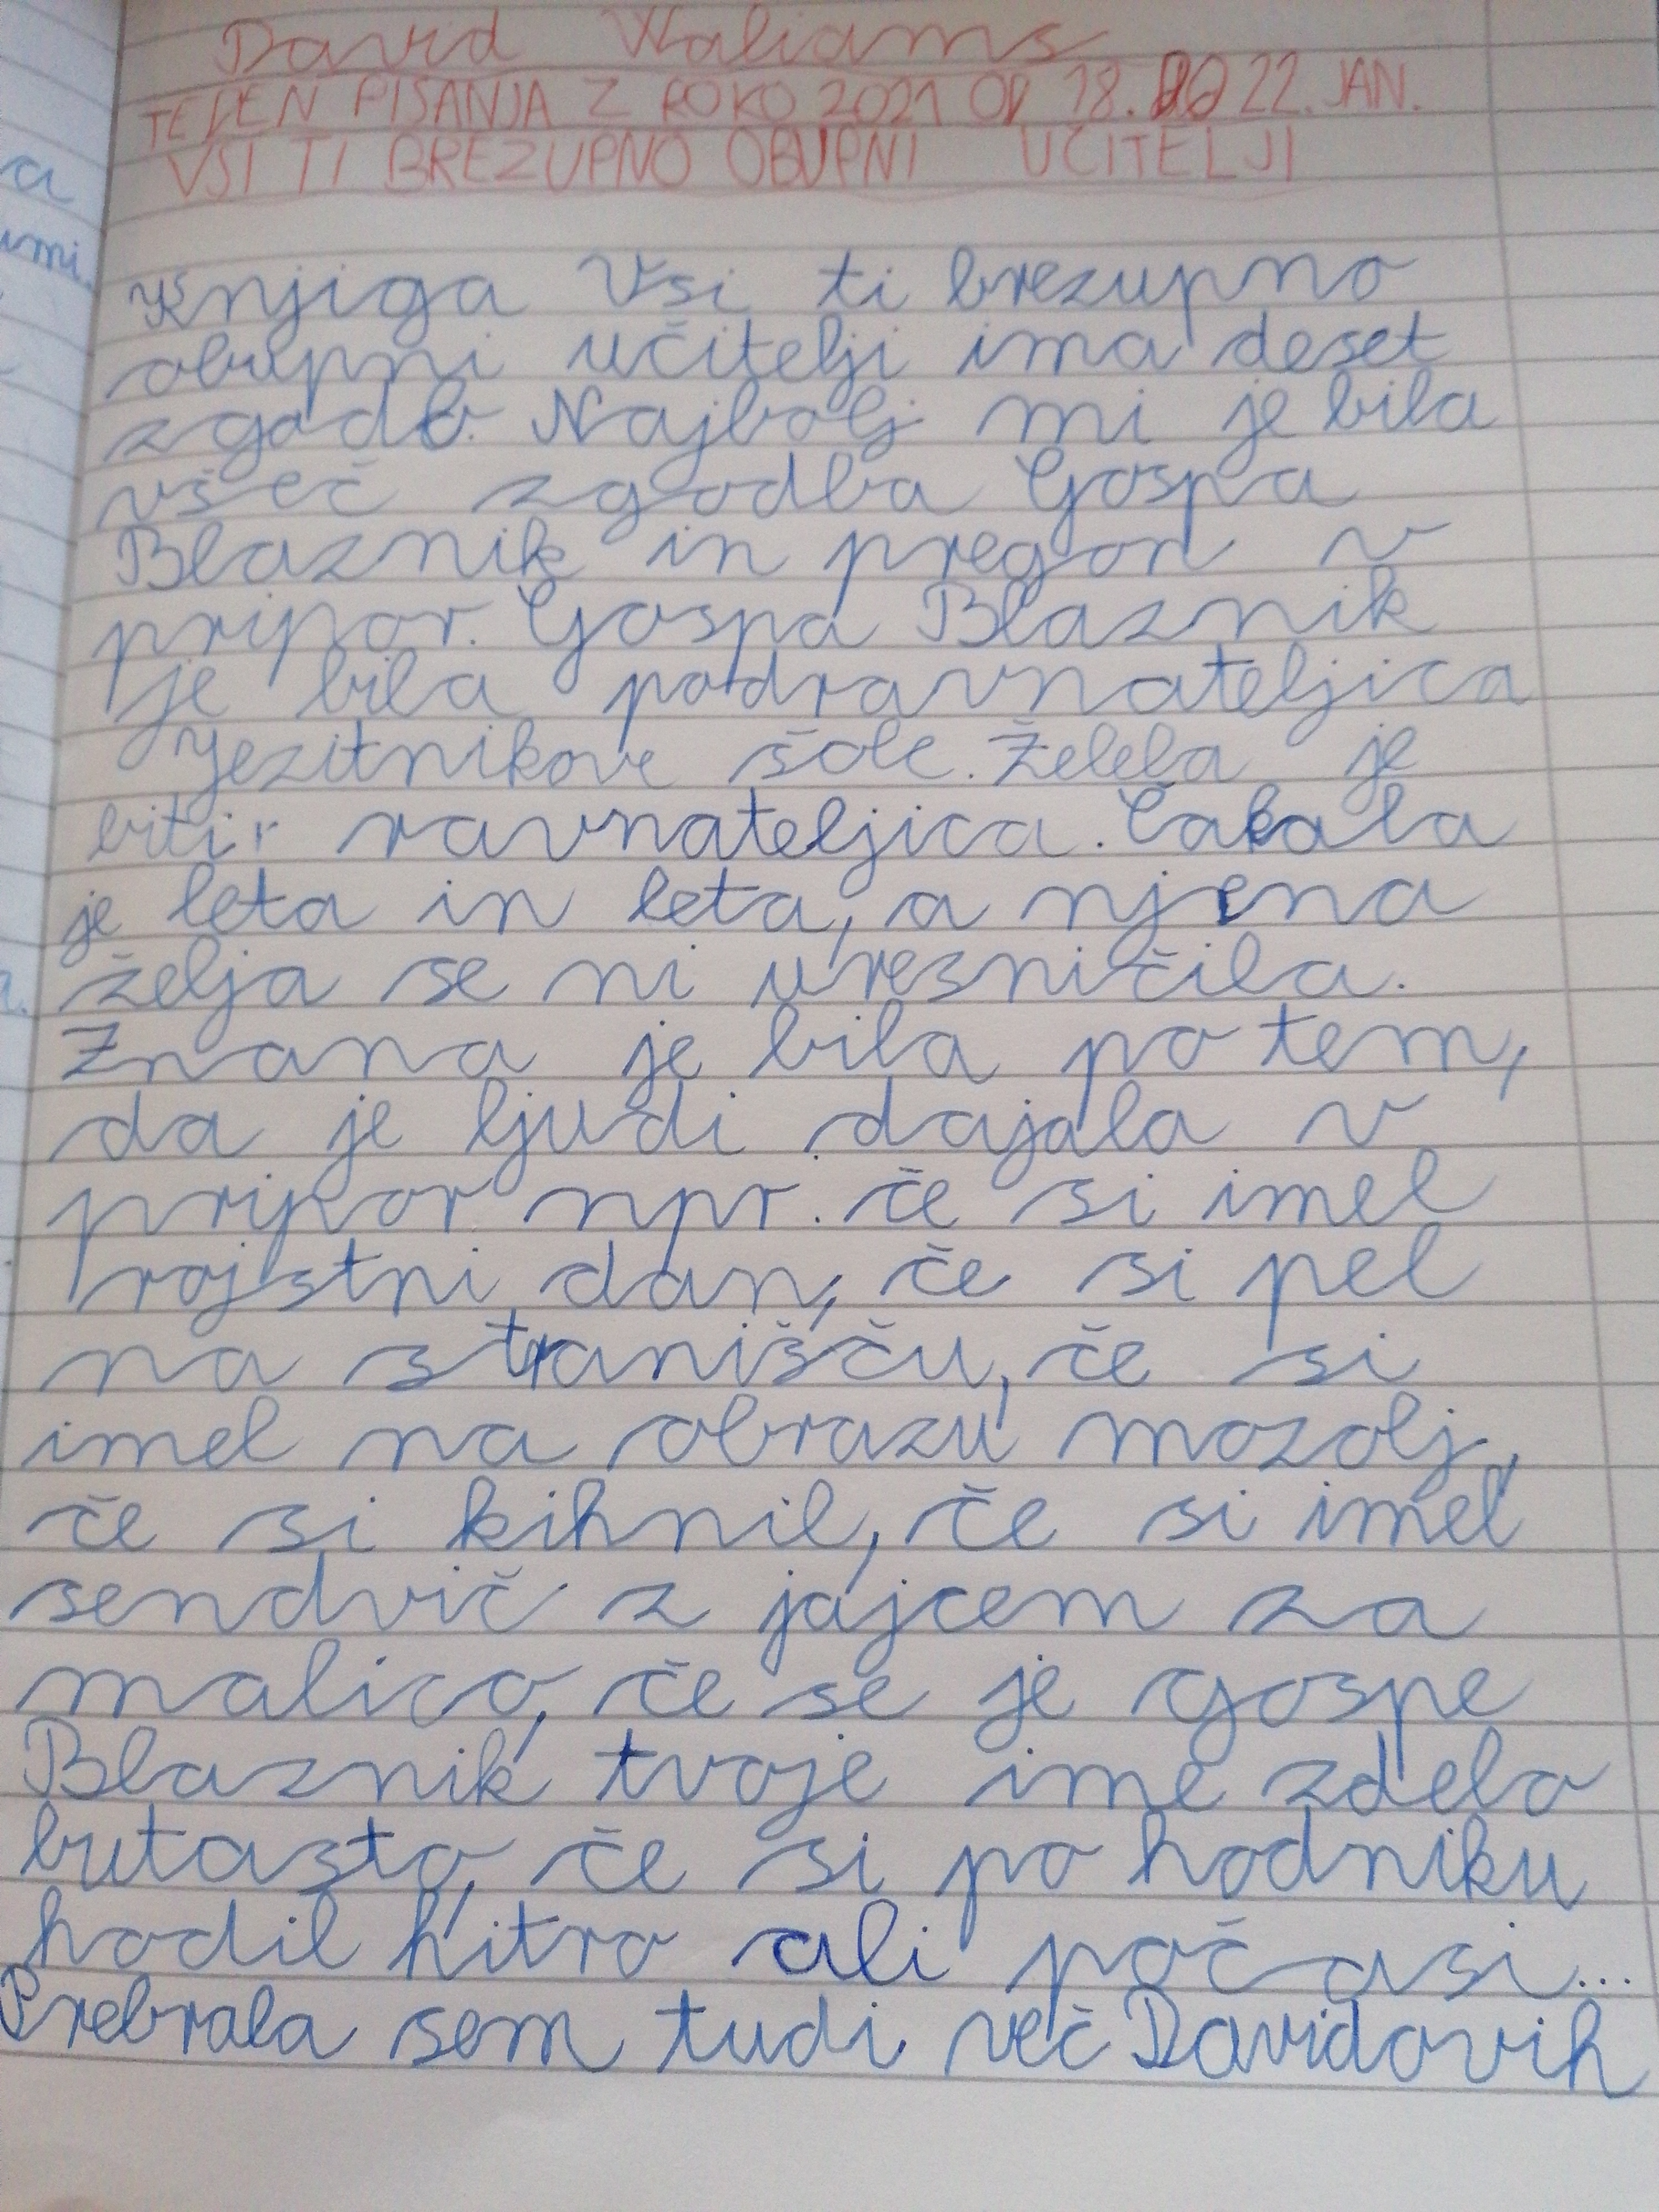 David Waliams
TEDEN PISANJA Z ROKO 2021 OD 18. DO 22. JAN.
VSI TI BREZUPNO OBUPNI UČITELJI
Knjiga Vsi ti brezupno
obupni učitelji ima deset
zgodb. Najbolj mi je bila
všeč zgodba Gospa
Blaznik in pregon v
pripor. Gospa Blaznik
je bila podravnateljica
Jezitnikove šole. Želela je
biti ravnateljica. Čakala
je leta in leta, a njena
želja se ni uresničila.
Znana je bila po tem,
da je ljudi dajala v
pripor npr. če si imel
rojstni dan, če si pel
na stranišču, če si
imel na obrazu mozolj,
če si kihnil, če si imel
sendvič z jajcem za
malico, če se je gospe
Blaznik tvoje ime zdelo
butasto, če si po hodniku
hodil hitro ali počasi...
Prebrala sem tudi več Davidovih